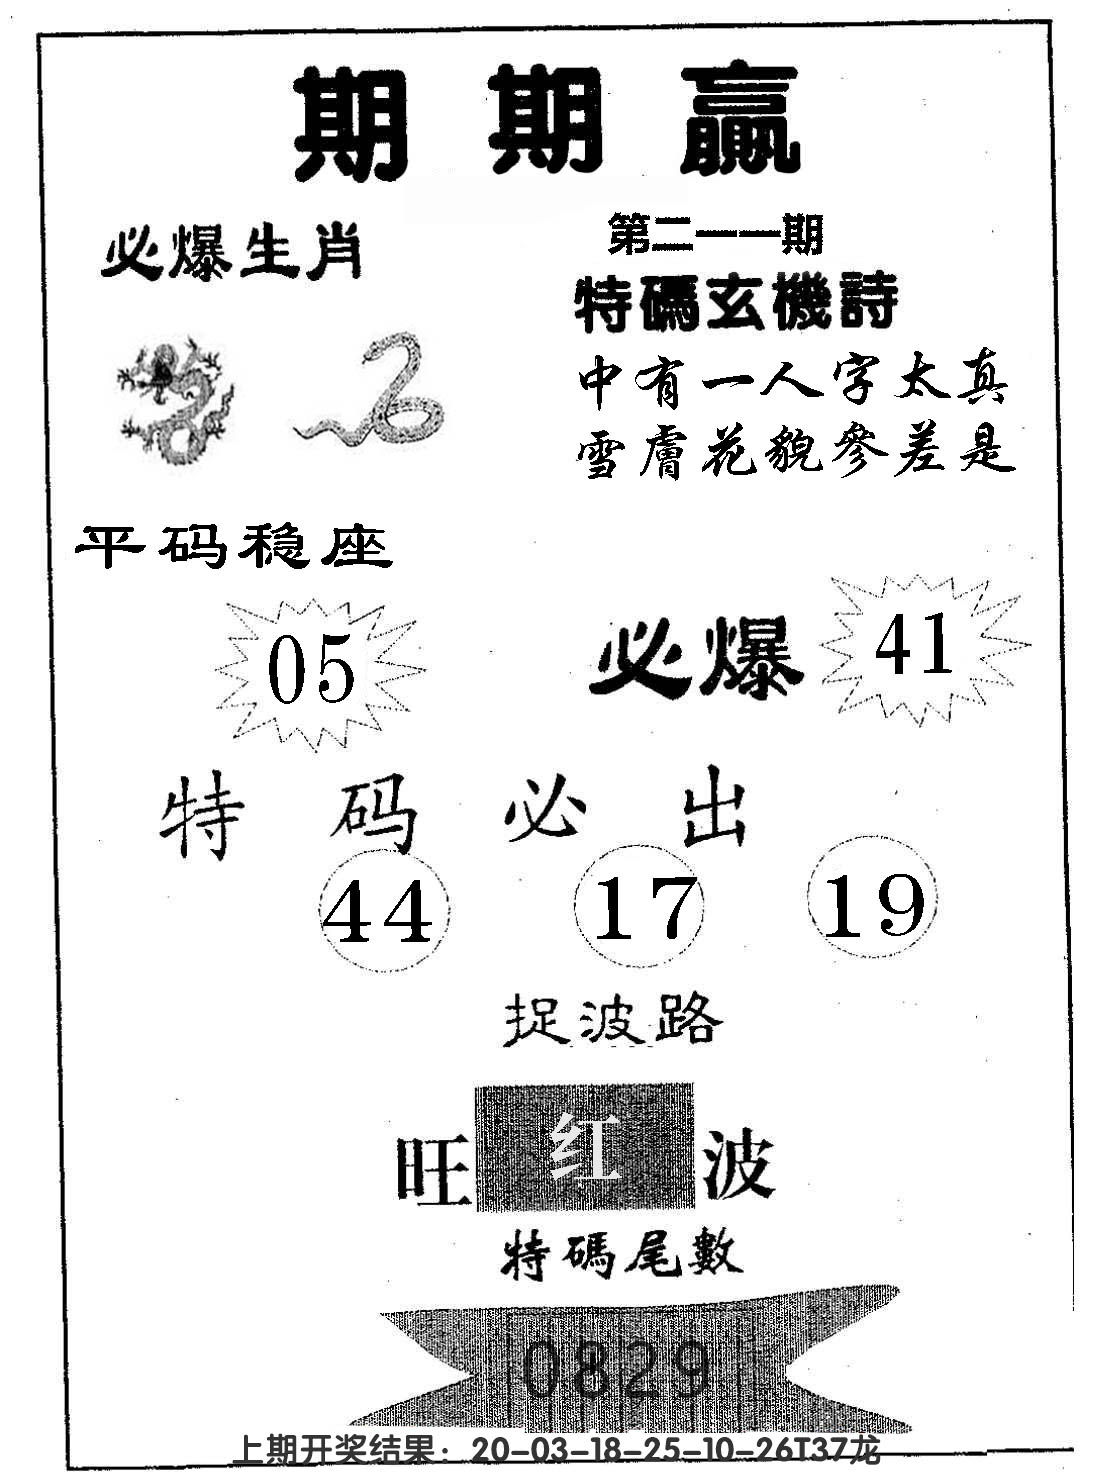 期期赢
必爆生肖
第二一一期
特碼玄機詩
中有一人字太真
雪膚花貌參差是
平码稳座
05
必爆 41
特码必出
44 17 19
捉波路
旺红波
特碼尾數
0829
上期开奖结果：20-03-18-25-10-26T37龙